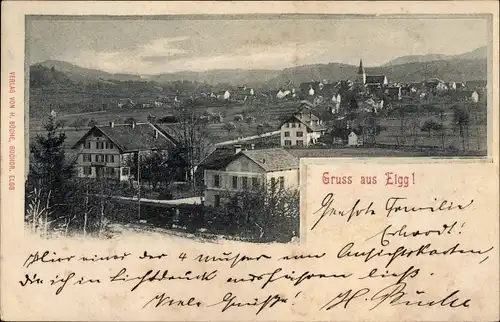 VERLAG VON H. BÜCHI, BUCHDR. ELGG
Gruss aus Elgg!
Geehrte Familie
Hier einer der 4 Muster von Ansichtskarten,
die ich in Lichtdruck ausführen liess.
Viele Grüsse! H. Büchi